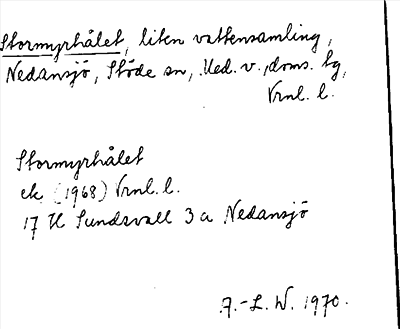 Stormyrhålet, liten vattensamling,
Nedansjö, Stöde sn, Med. v., doms. tg,
Vrnl. l.
Stormyrhålet
ek (1968) Vrnl. l.
17 H Sundsvall 3 a Nedansjö
A.-L. W. 1970.